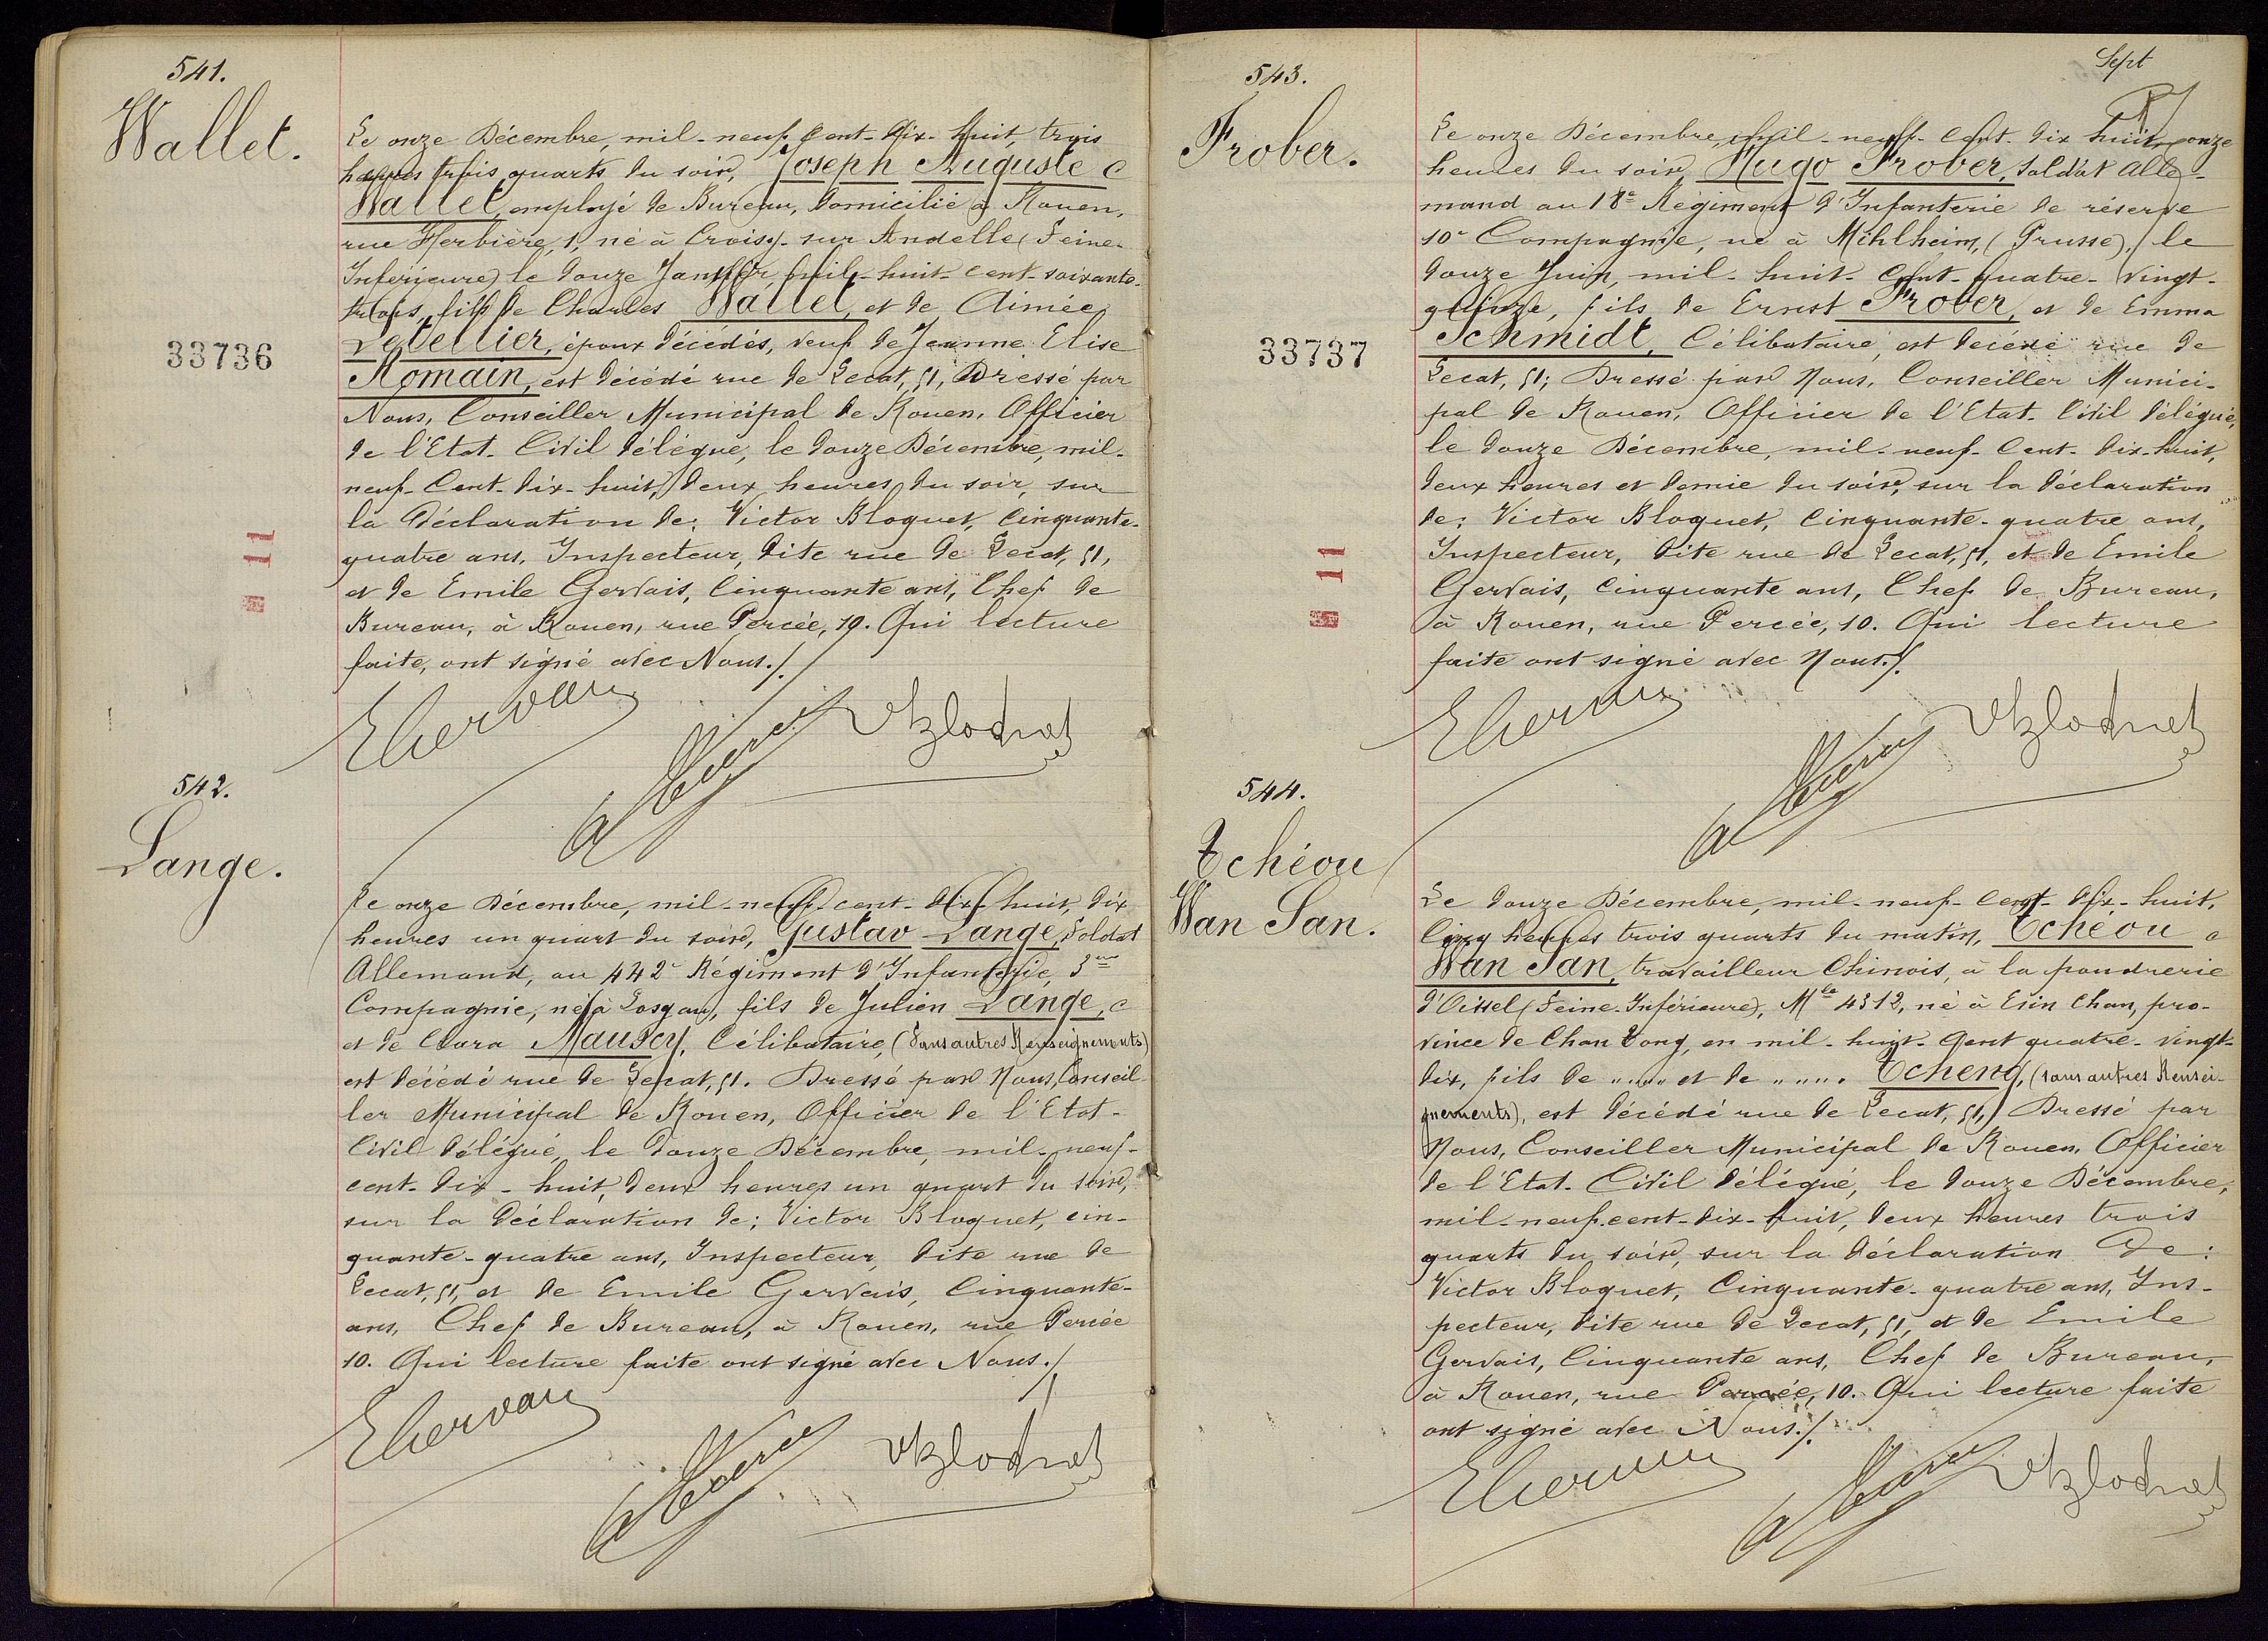 541.
Wallet.
Le onze Décembre, mil-neuf-Cent-dix-huit, trois
heures trois quarts du soir, Joseph Auguste
Wallet, employé de Bureau, domicilié à Rouen,
rue Herbière, 1, né à Croisy-sur Andelle (Seine-
Inférieure) le douze Janvier, mil-huit-cent-soixante-
trois, fils de Charles Wallet, et de Aimée
Letellier, époux décédés, veuf de Jeanne Elise
Romain, est décédé rue de Lecat, 51, Dressé par
Nous, Conseiller Municipal de Rouen, Officier
de l'Etat-Civil délégué, le douze Décembre, mil-
neuf-Cent-dix-huit, deux heures du soir, sur
la déclaration de: Victor Bloquet, Cinquante-
quatre ans, Inspecteur, dite rue de Lecat, 51,
et de Emile Gervais, Cinquante ans, Chef de
Bureau, à Rouen, rue Percée, 10. Qui lecture
faite, ont signé avec Nous./.
33736
11
EGervais
VBloquet
542.
Lange.
Le onze Décembre, mil-neuf-cent-dix-huit, dix
heures un quart du soir, Gustav Lange, Soldat
Allemand, au 442e Régiment d'Infanterie, 3me
Compagnie, né à Losgau, fils de Julien Lange,
et de Clara Mauscy, Célibataire, (Sans autres Renseignements)
est décédé rue de Lecat, 51. Dressé par Nous, Conseil-
ler Municipal de Rouen, Officier de l'Etat-
Civil délégué, le douze Décembre, mil-neuf-
cent-dix-huit, deux heures un quart du soir,
sur la déclaration de: Victor Bloquet, cin-
quante-quatre ans, Inspecteur, dite rue de
Lecat, 51, et de Emile Gervais, Cinquante-
ans, Chef de Bureau, à Rouen, rue Percée
10. Qui lecture faite ont signé avec Nous./.
EGervais
VBloquet
Sept
543.
Frober.
Le onze Décembre, mil-neuf-Cent-dix huit, onze
heures du soir, Hugo Frober, soldat Alle-
mand au 18e Régiment d'Infanterie de réserve
10e Compagnie, né à Mihlheim, (Prusse), le
douze Juin, mil-huit-Cent-quatre-vingt-
quinze, fils de Ernest Frober, et de Emma
Schmidt, Célibataire, est décédé rue de
Lecat, 51; Dressé par Nous, Conseiller Munici-
pal de Rouen, Officier de l'Etat-Civil délégué,
le douze Décembre, mil-neuf-Cent-dix-huit,
deux heures et demie du soir, sur la déclaration
de: Victor Bloquet, Cinquante-quatre ans,
Inspecteur, dite rue de Lecat, 51, et de Emile
Gervais, Cinquante ans, Chef de Bureau,
à Rouen, rue Percée, 10. Qui lecture
faite ont signé avec Nous./.
33737
11
EGervais
VBloquet
544.
Tchéou
Wan San.
Le douze Décembre, mil-neuf-Cent-dix-huit,
Cinq heures trois quarts du matin, Tchéou
Wan San, travailleur Chinois, à la poudrerie
d'Oissel (Seine-Inférieure), Mle 4312, né à Esin Chan, pro-
vince de Chan Tong, en mil-huit-Cent quatre-vingt-
dix, fils de "..." et de "...". Tcheng, (sans autres Rensei-
gnements), est décédé rue de Lecat, 51, Dressé par
Nous, Conseiller Municipal de Rouen, Officier
de l'Etat-Civil délégué, le douze Décembre,
mil-neuf-cent-dix-huit, deux heures trois
quarts du soir, sur la déclaration de:
Victor Bloquet, Cinquante-quatre ans, Ins-
pecteur, dite rue de Lecat, 51, et de Emile
Gervais, Cinquante ans, Chef de Bureau,
à Rouen, rue Percée, 10. Qui lecture faite
ont signé avec Nous./.
EGervais
VBloquet